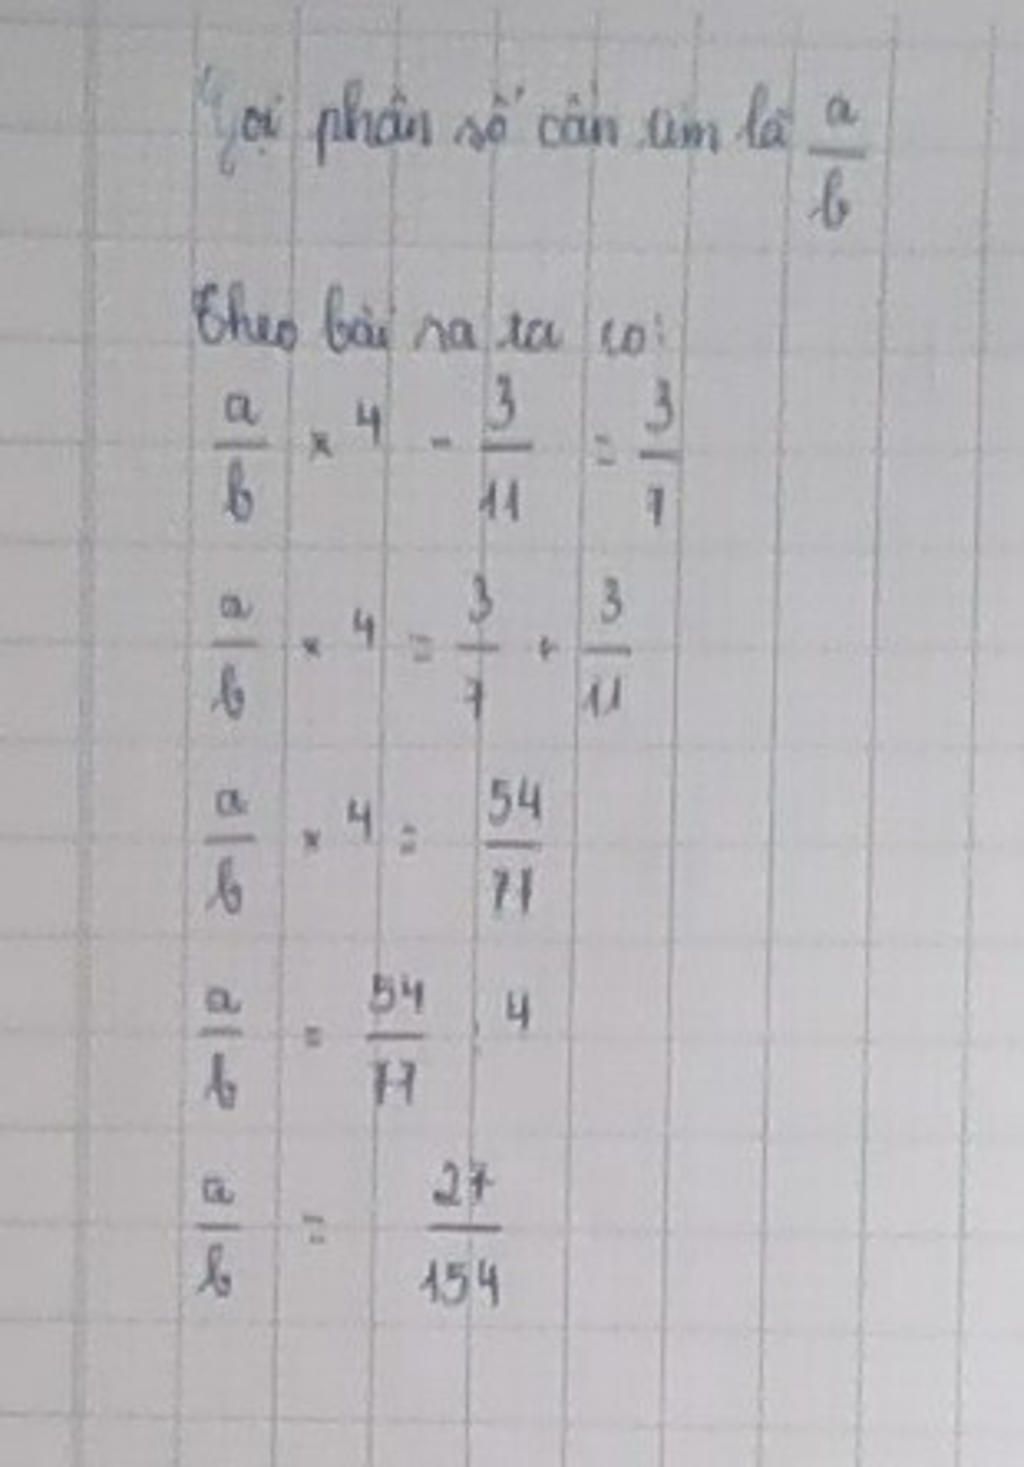 Gọi phân số cần tìm là a/b
Theo bài ra ta có:
a/b × 4 - 3/11 = 3/7
a/b × 4 = 3/7 + 3/11
a/b × 4 = 54/77
a/b = 54/77 : 4
a/b = 27/154